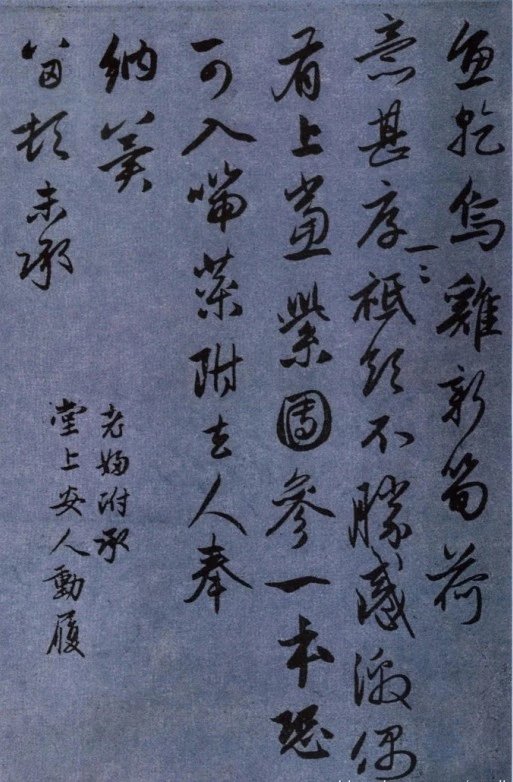 魚乾烏雞新筍荷
意甚厚一二祗領不勝感激偶
有上黨紫團參一本恐
可入喘藥附去人奉
納冀
留頓未承
老婦附承
堂上安人動履